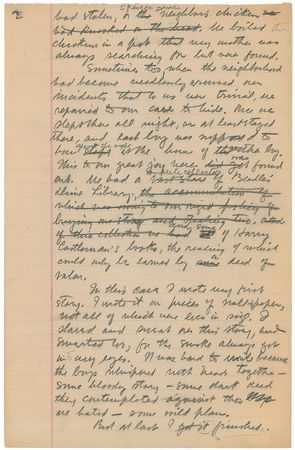 2
had stolen, or the neighbors chickens we
had knocked on the head. We boiled the
chickens in a pot that my mother was
always searching for but never found.
Sometimes too, when the neighborhood
had become needlessly aroused over
incidents that to us were trivial, we
repaired to our cave to hide. Once we
slept there all night, or at least stayed
there, and each boy was supposed to
have spent the night at the home of the other boy.
This to our great joy was never found
out. We had a
Library, the accumulation of
which was owing to our rigid policy of
buying one story and stealing two,
of this collection we had some of Harry
Castleman's books, the reading of which
could only be earned by a deed of
valor.
In this cave I wrote my first
story. I wrote it on pieces of wallpaper,
not all of which were even in size. I
slaved and sweat over this story, and
smarted too, for the smoke always got
in my eyes. It was hard to write because
the boys whispered with heads together –
some bloody story – some dark deed
they contemplated against
we hated – some wild plan.
But at last I got it finished.